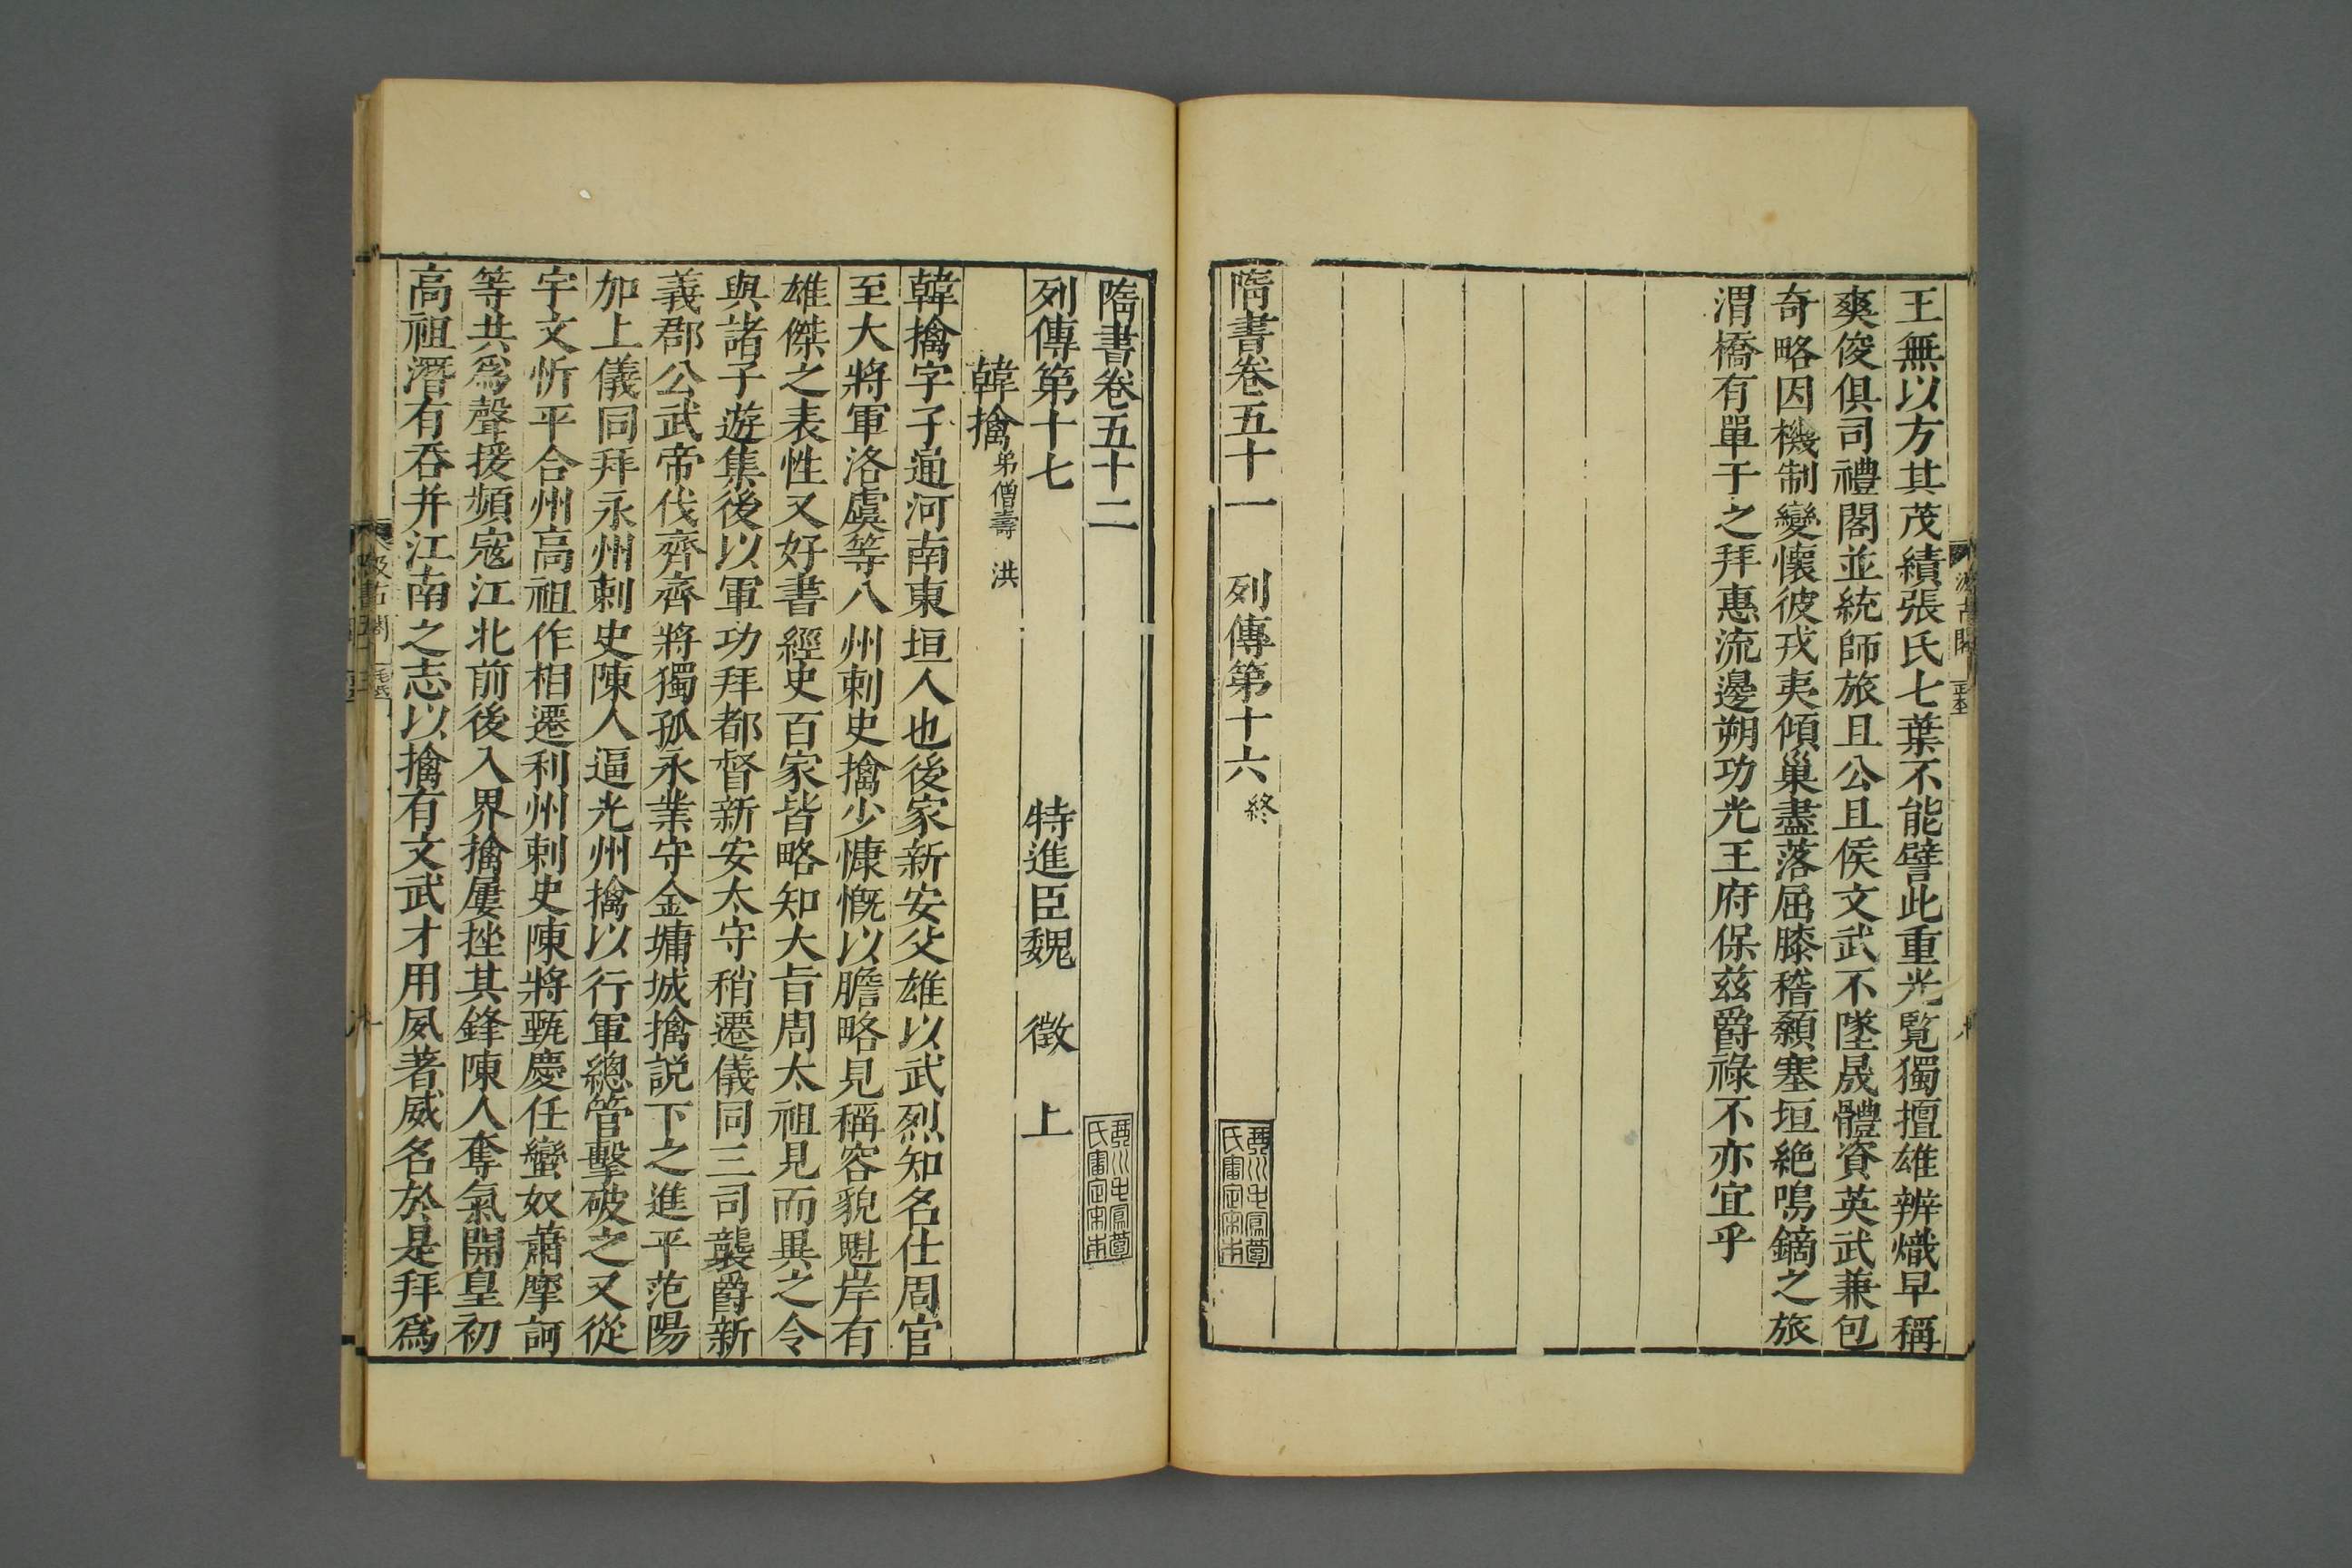 王無以方其茂績張氏七葉不能譬此重光覽獨擅雄辨熾早稱
爽俊俱司禮閣並統師旅且公且侯文武不墜晟體資英武兼包
奇略因機制變懷彼戎夷傾巢盡落屈膝稽顙塞垣絶鳴鏑之旅
渭橋有單于之拜惠流邊朔功光王府保茲爵祿不亦宜乎
隋書卷五十一 列傳第十六 終
琴川毛鳳苞
氏審定宋本
隋書卷五十二
琴川毛鳳苞
氏審定宋本
列傳第十七 特進臣魏 徵 上
韓擒 弟僧壽 洪
韓擒字子通河南東垣人也後家新安父雄以武烈知名仕周官
至大將軍洛虞等八州刺史擒少慷慨以膽略見稱容貌魁岸有
雄傑之表性又好書經史百家皆略知大旨周太祖見而異之令
與諸子遊集後以軍功拜都督新安太守稍遷儀同三司襲爵新
義郡公武帝伐齊齊將獨孤永業守金墉城擒説下之進平范陽
加上儀同拜永州刺史陳人逼光州擒以行軍總管擊破之又從
宇文忻平合州高祖作相遷利州刺史陳將甄慶任蠻奴蕭摩訶
等共爲聲援頻寇江北前後入界擒屢挫其鋒陳人奪氣開皇初
高祖潛有吞并江南之志以擒有文武才用夙著威名於是拜爲